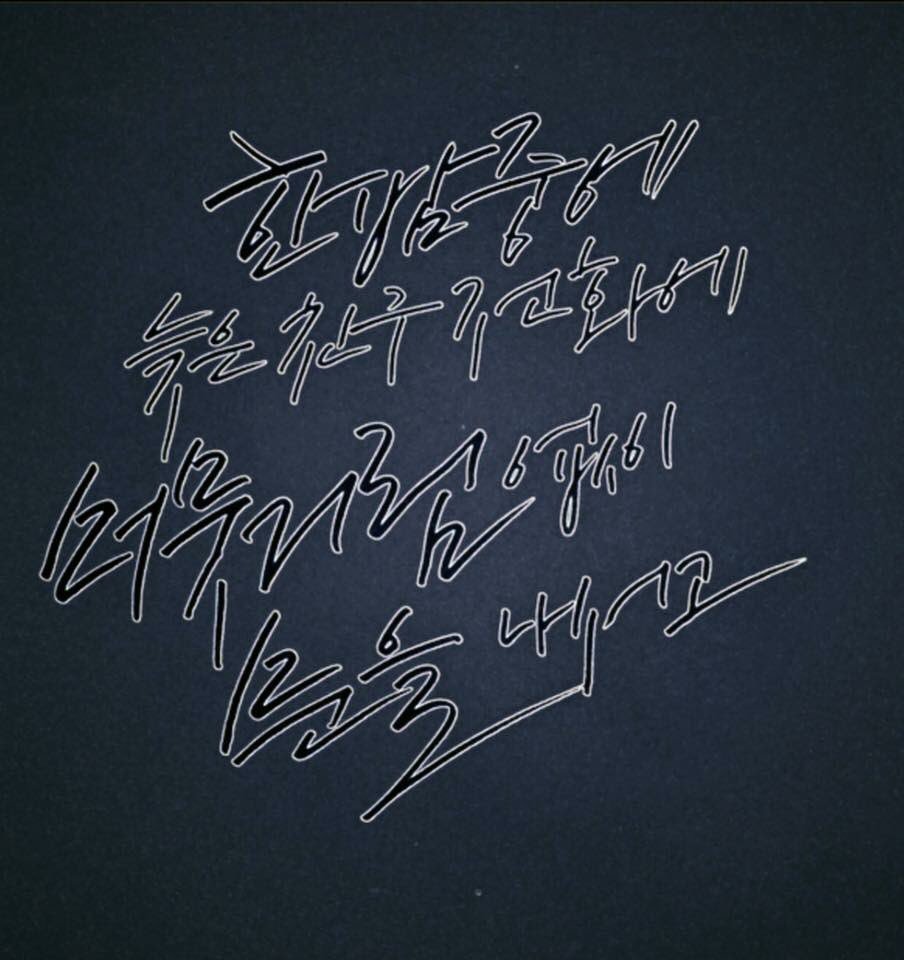 한밤중에
늦은 친구 전화에
머뭇거림 없이
문을 나서고